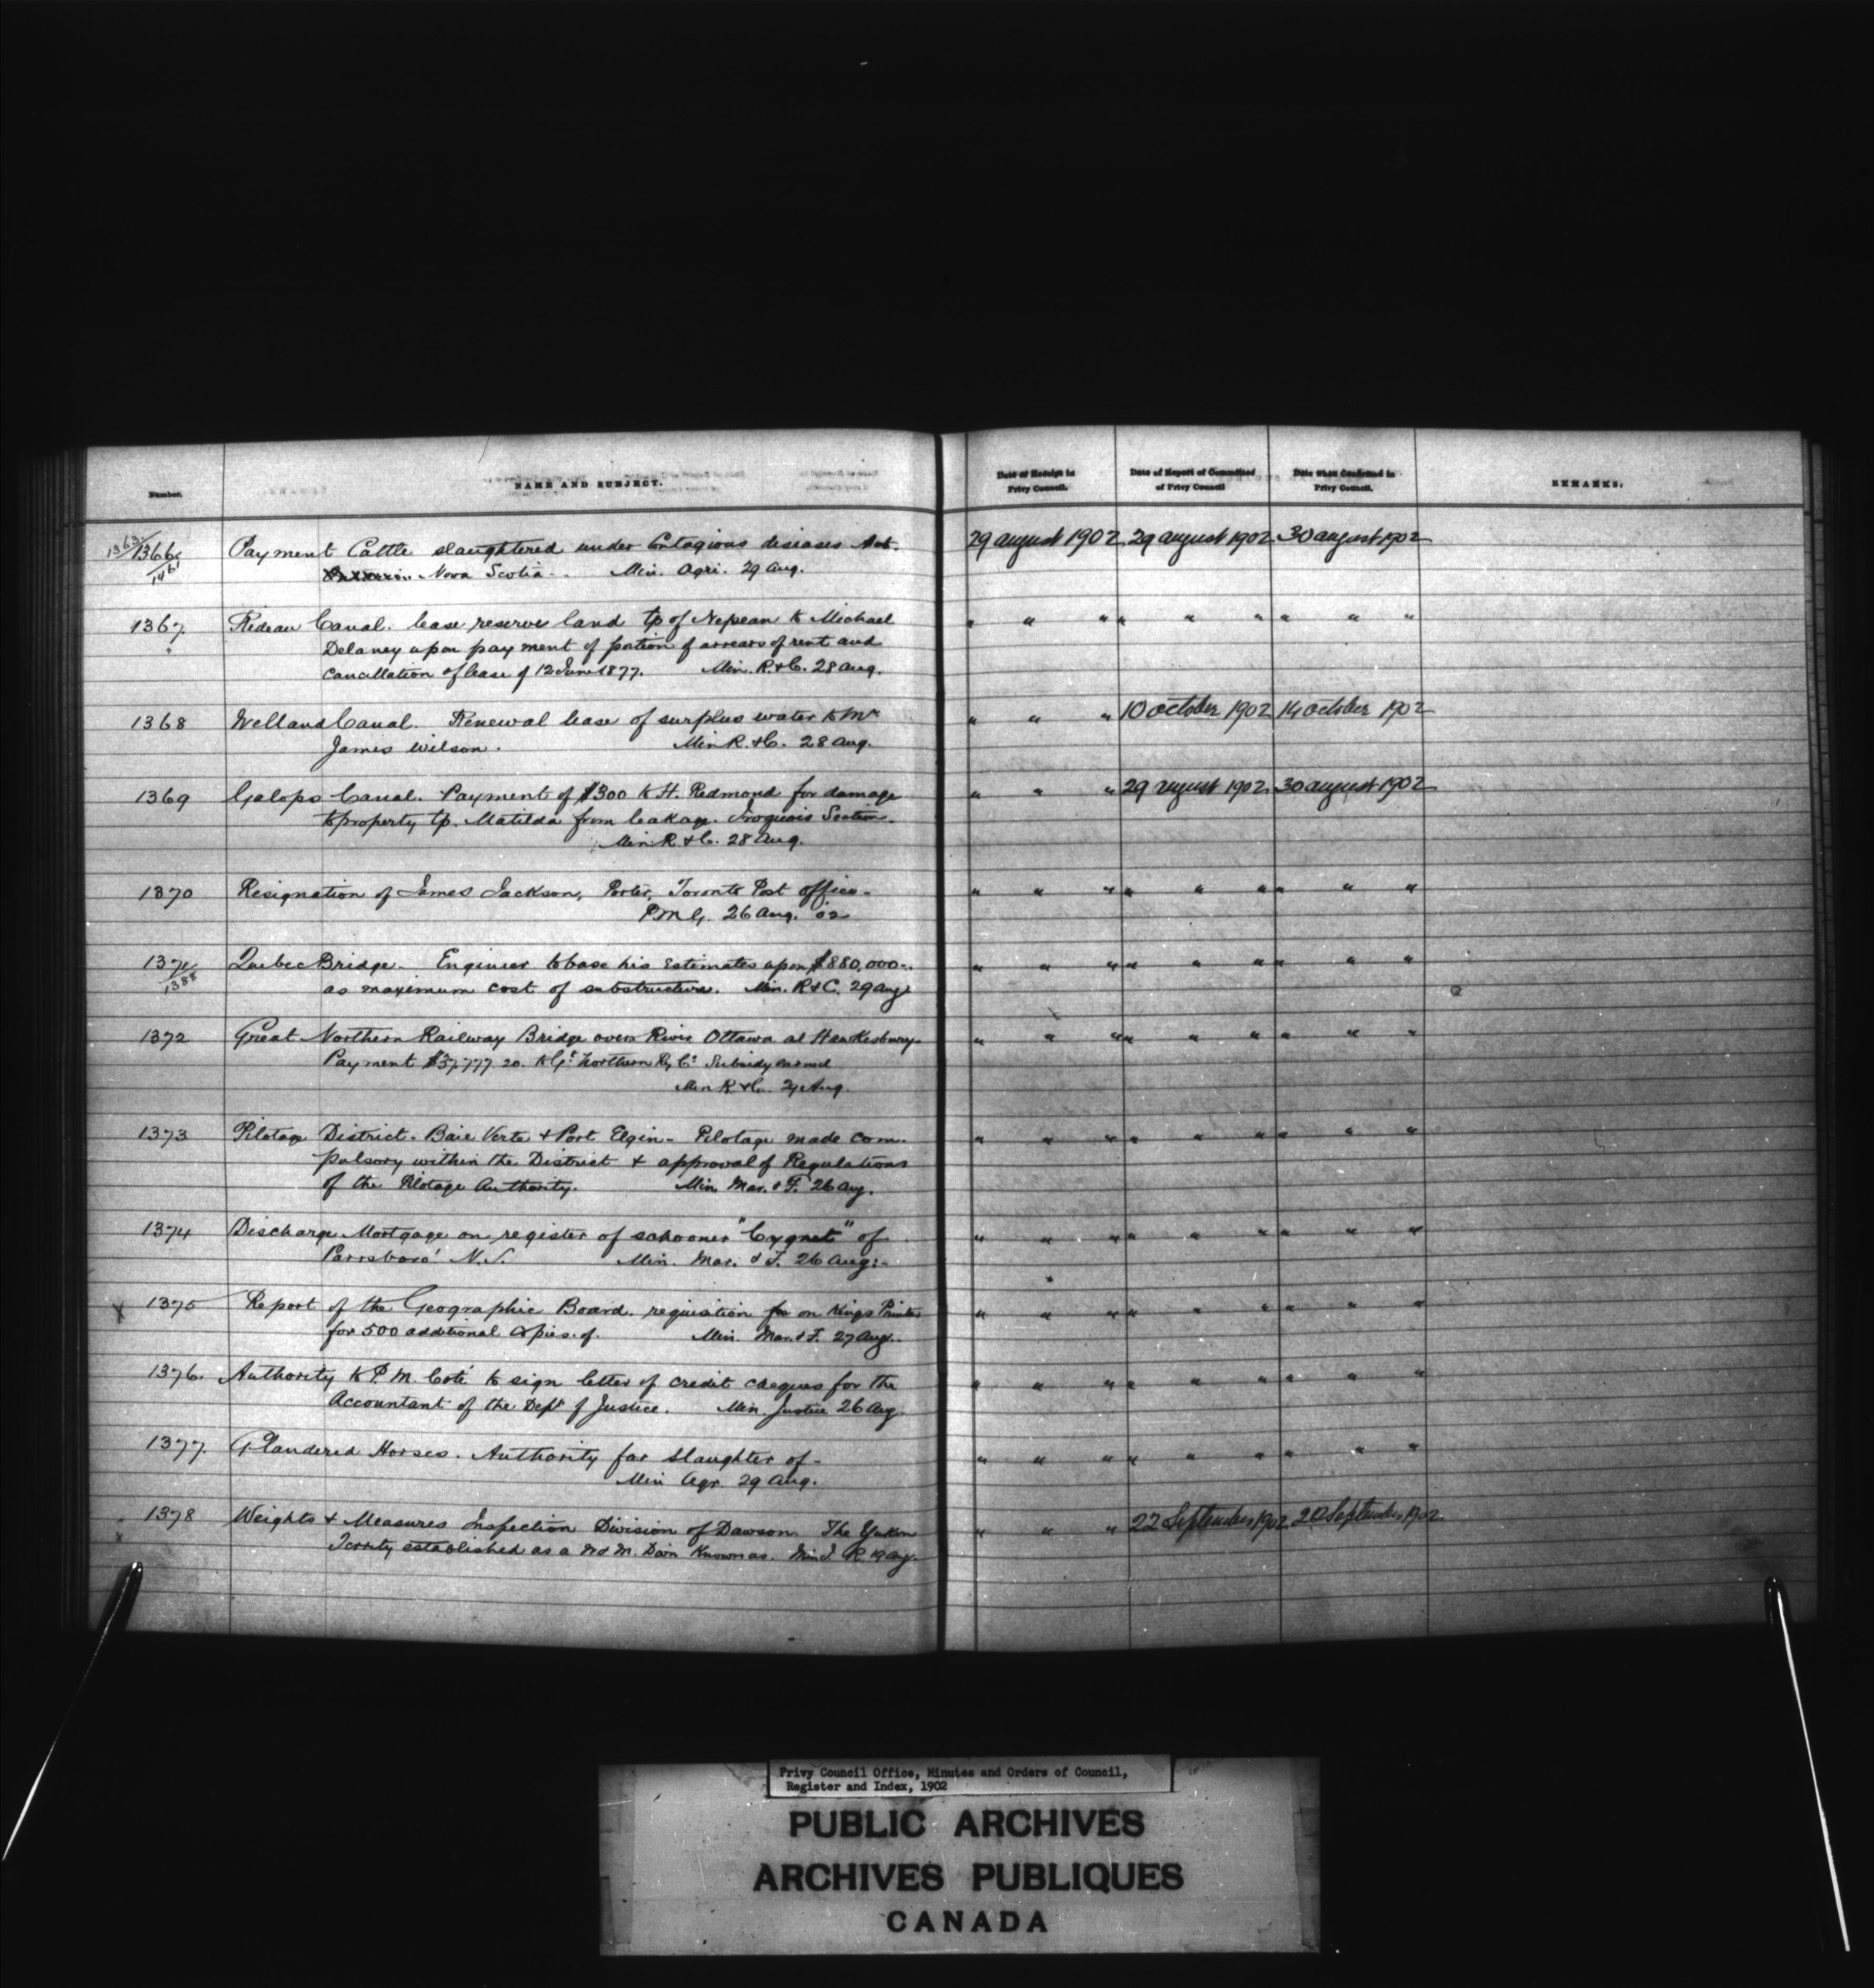 Number.
NAME AND SUBJECT.
Date of Receipt in
Privy Council.
Date of Report of Committee
of Privy Council
Date when Confirmed in
Privy Council.
REMARKS.
1363/1366/1461 Payment Cattle slaughtered under Contagious diseases Act. 29 august 1902 29 august 1902 30 august 1902
Nova Scotia - . Min. Agri. 29 Aug.
1367. Rideau Canal. lease reserve land tp of Nepean to Michael " " " " " " " " "
Delaney upon payment of portion of arrears of rent and
cancellation of lease of 12 June 1877. Min. R. & C. 28 Aug.
1368 Welland Canal. Renewal lease of surplus water to Mr " " " 10 october 1902 14 october 1902
James Wilson. Min R. & C. 28 Aug.
1369 Galops Canal. Payment of $300 to H. Redmond for damage " " " 29 august 1902. 30 august 1902
to property tp. Matilda from leakage. Iroquois Section.
Min R. & C. 28 Aug.
1370 Resignation of James Jackson, Porter, Toronto Post office - " " " " " " " " "
P.M.G. 26 Aug. '02
1371/1388 Quebec Bridge. Engineer to base his Estimates upon $880,000 - . " " " " " " " " "
as maximum cost of substructure. Min. R & C. 29 Aug
1372 Great Northern Railway Bridge over River Ottawa at Hawkesbury. " " " " " " " " "
Payment 20. to Gt Northern Ry Co Subsidy earned
Min R. & C. Aug.
1373 Pilotage District. Baie Verte & Port Elgin - Pilotage made com- " " " " " " " " "
pulsory within the District & approval of Regulations
of the Pilotage Authority. Min. Mar. & F. 26 Aug.
1374 Discharge Mortgage on register of schooner "Cygnet" of " " " " " " " " "
Parrsboro' N.S. Min. Mar. & F. 26 Aug: -
1375 Report of the Geographic Board. requisition for on Kings Printer " " " " " " " " "
for 500 additional Copies of. Min. Mar. & F. 27 Aug.
1376. Authority to P. M. Coté to sign letter of credit cheques for the " " " " " " " " "
Accountant of the Dept of Justice. Min. Justice 26 Aug.
1377. Glandered Horses. Authority for slaughter of - " " " " " " " " "
Min Agr. 29 Aug.
1378 Weights & Measures Inspection Division of Dawson. The Yukon " " " 22 September 1902 September 1902
Territy established as a W & M. Divn Known as. Min I R 19 Aug.
Privy Council Office, Minutes and Orders of Council,
Register and Index, 1902
PUBLIC ARCHIVES
ARCHIVES PUBLIQUES
CANADA